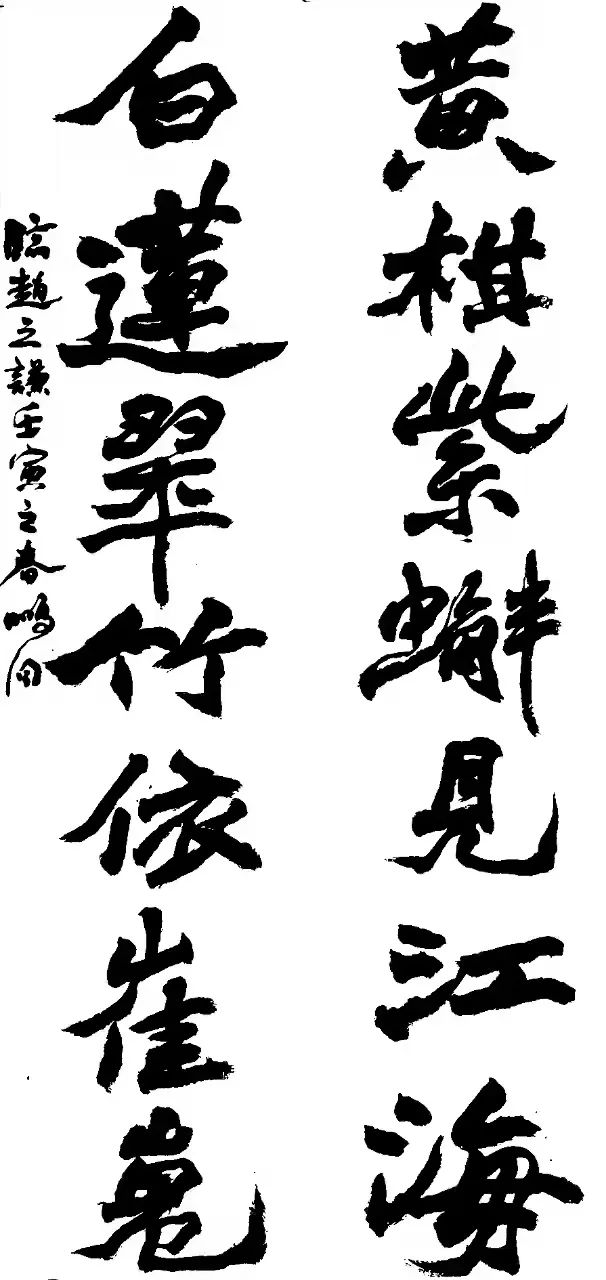 黄柑紫蠏見江海
白蓮翠竹依崔嵬
臨趙之謙壬寅之春鵬